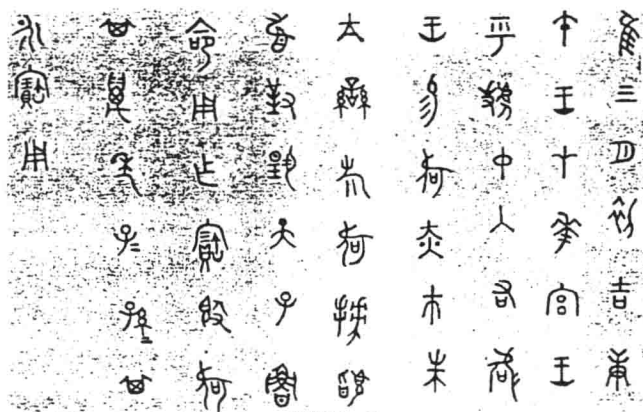 隹三月初吉庚
午王才華宮王
乎虢中入右何
王易何赤巿朱
亢䜌旂何拜䭫
首對揚天子魯
命用乍寶𣪘何
其萬年子=孫=其
永寶用